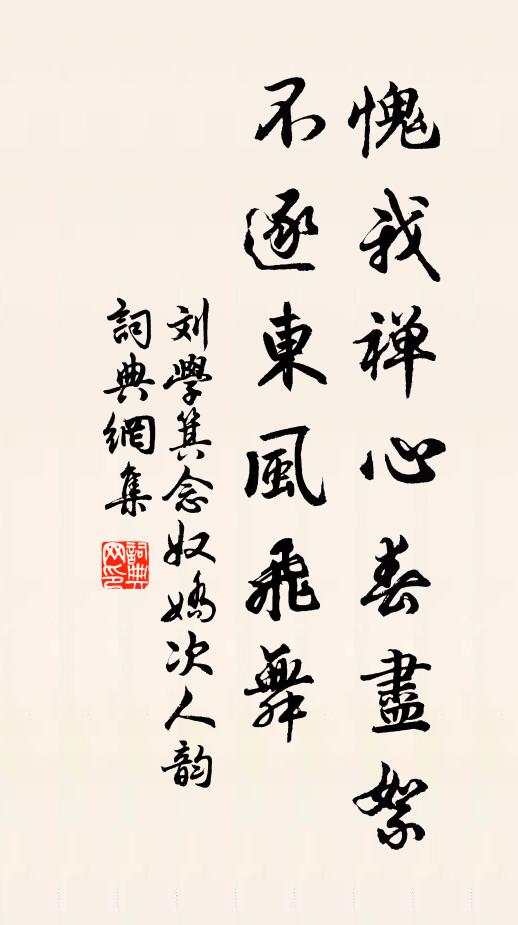 愧我禅心春盡絮
不逐東風飛舞
刘學箕念奴嬌次人韵
詞典網集
詞典网印